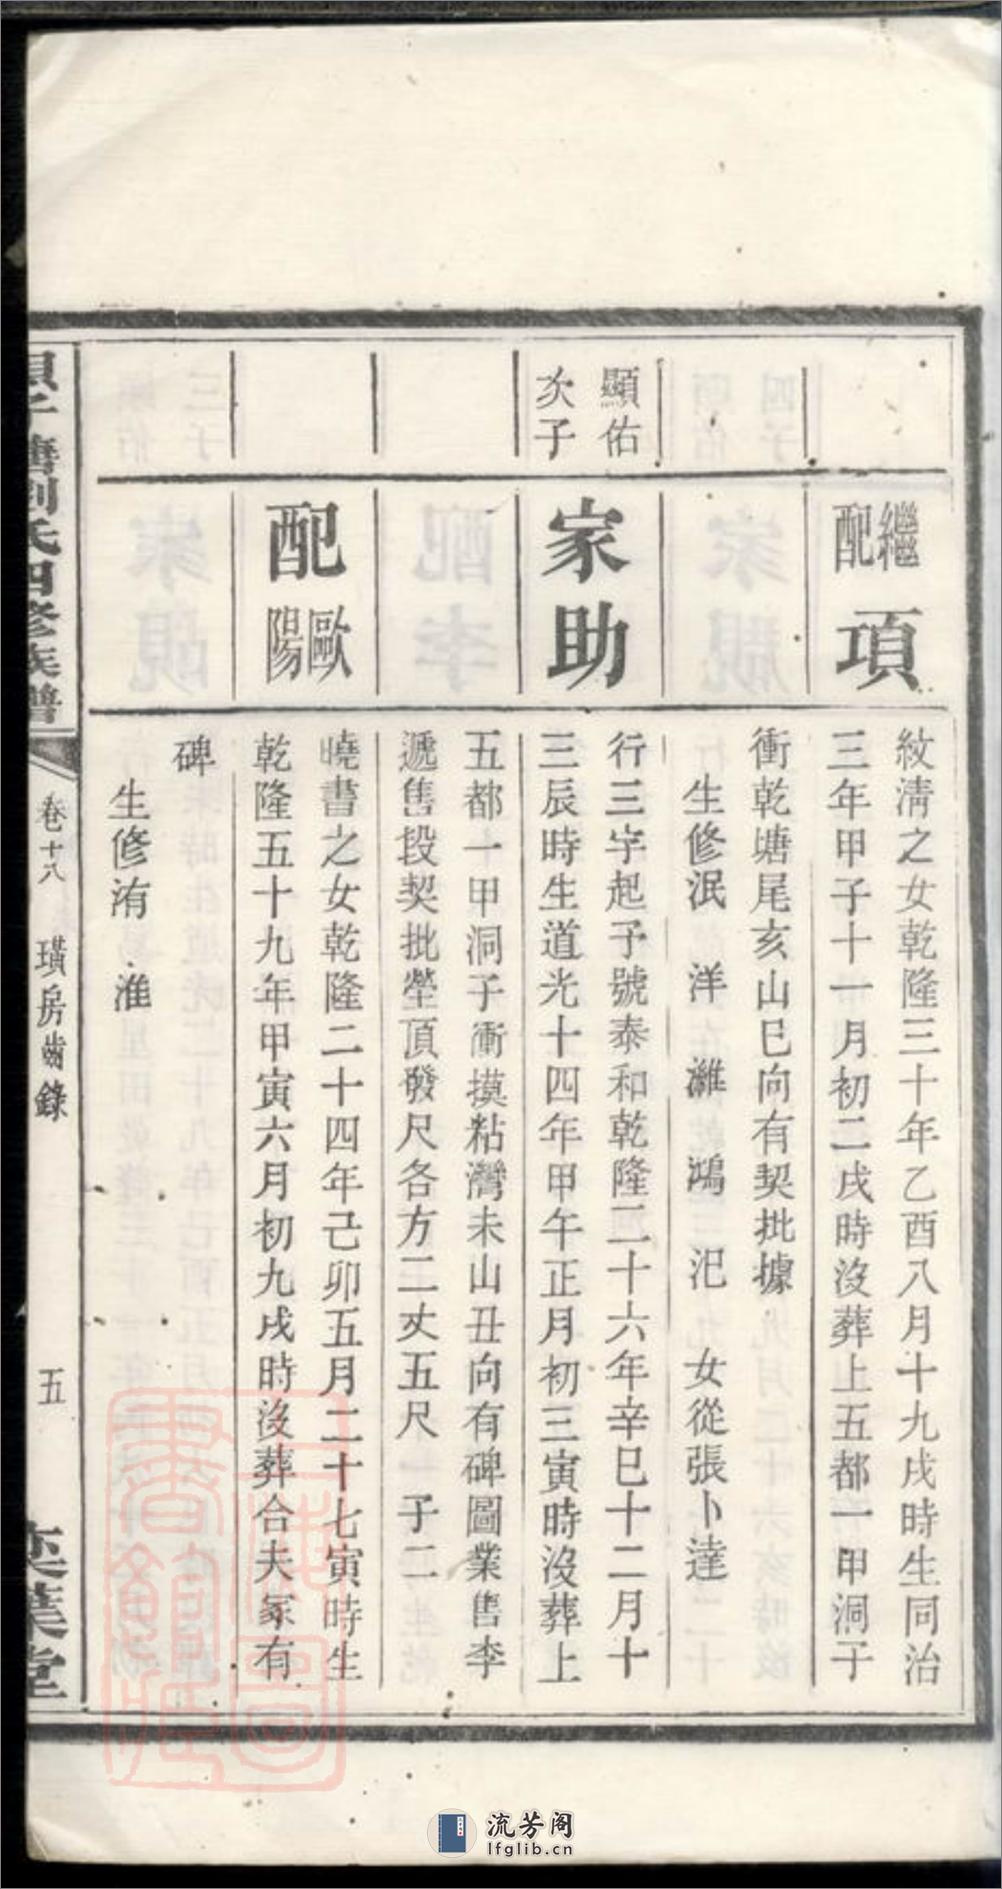 繼配項
紋淸之女乾隆三十年乙酉八月十九戌時生同治
三年甲子十一月初二戌時沒葬上五都一甲洞子
衝乾塘尾亥山巳向有契批據
生修泯 洋 濰 鴻 汜 女從張卜達
顯佑次子
家助
行三字起予號泰和乾隆二十六年辛巳十二月十
三辰時生道光十四年甲午正月初三寅時沒葬上
五都一甲洞子衝摸粘灣未山丑向有碑圖業售李
遞售投契批塋頂發尺各方二丈五尺 子二
配歐陽
曉書之女乾隆二十四年己卯五月二十七寅時生
乾隆五十九年甲寅六月初九戌時沒葬合夫冢有
碑
生修洧 淮
劉氏四修族譜
卷十八 璜房齒錄
五
奕葉堂
流芳阁
lfglib.cn